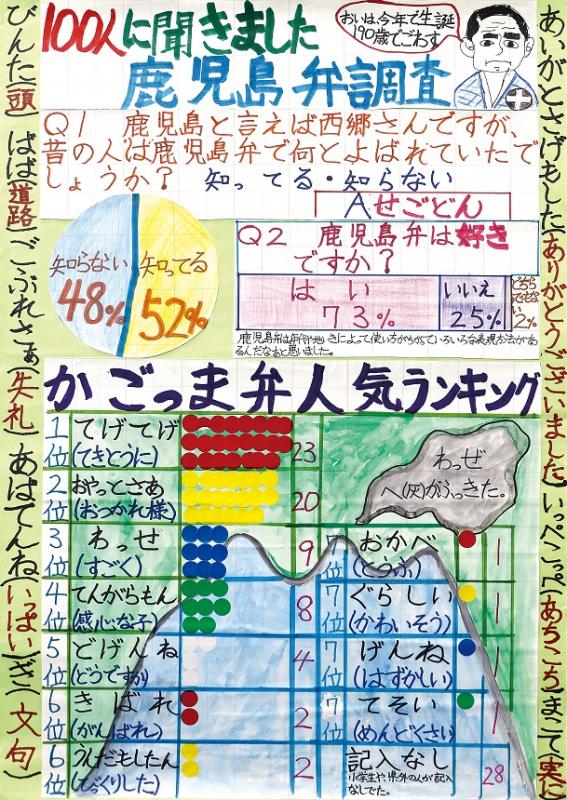 100人に聞きました
鹿児島弁調査
おいは、今年で生誕
190歳でごわす
Q1 鹿児島と言えば西郷さんですが、
昔の人は鹿児島弁で何とよばれていたで
しょうか? 知ってる・知らない
Aせごどん
知らない
48%
知ってる
52%
Q2 鹿児島弁は好き
ですか?
はい
73%
いいえ
25%
どちらでもない
2%
かごっま弁人気ランキング
1位 てげてげ (てきとうに) 23
2位 おやっとさあ (おつかれ様) 20
3位 わっせ (すごく) 9
4位 てんがらもん (感心な子) 8
5位 どげんね (どうですか) 4
6位 きばれ (がんばれ) 2
6位 うんだもしたん (びっくりした) 2
わっぜ
へ(灰)がふっきた。
7位 おかべ (とうふ) 1
7位 ぐらしい (かわいそう) 1
7位 げんね (はずかしい) 1
7位 てそい (めんどくさい) 1
記入なし 28
小学生や、県外の人が記入
なしでした。
びんた(頭) ばば(道路) ごぶれさぁ(失礼) あばてんね(いっぱい) ざ(文句)
あいがとさげもした(ありがとうございました) いっぺこっぺ(あちこち) まこて(実に)